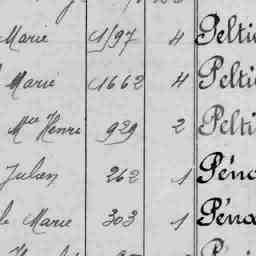 Marie 1597 4 Pelti
Marie 1662 4 Pelti
Mce Henri 929 2 Pelti
Julien 262 1 Péno
le Marie 303 1 Péno